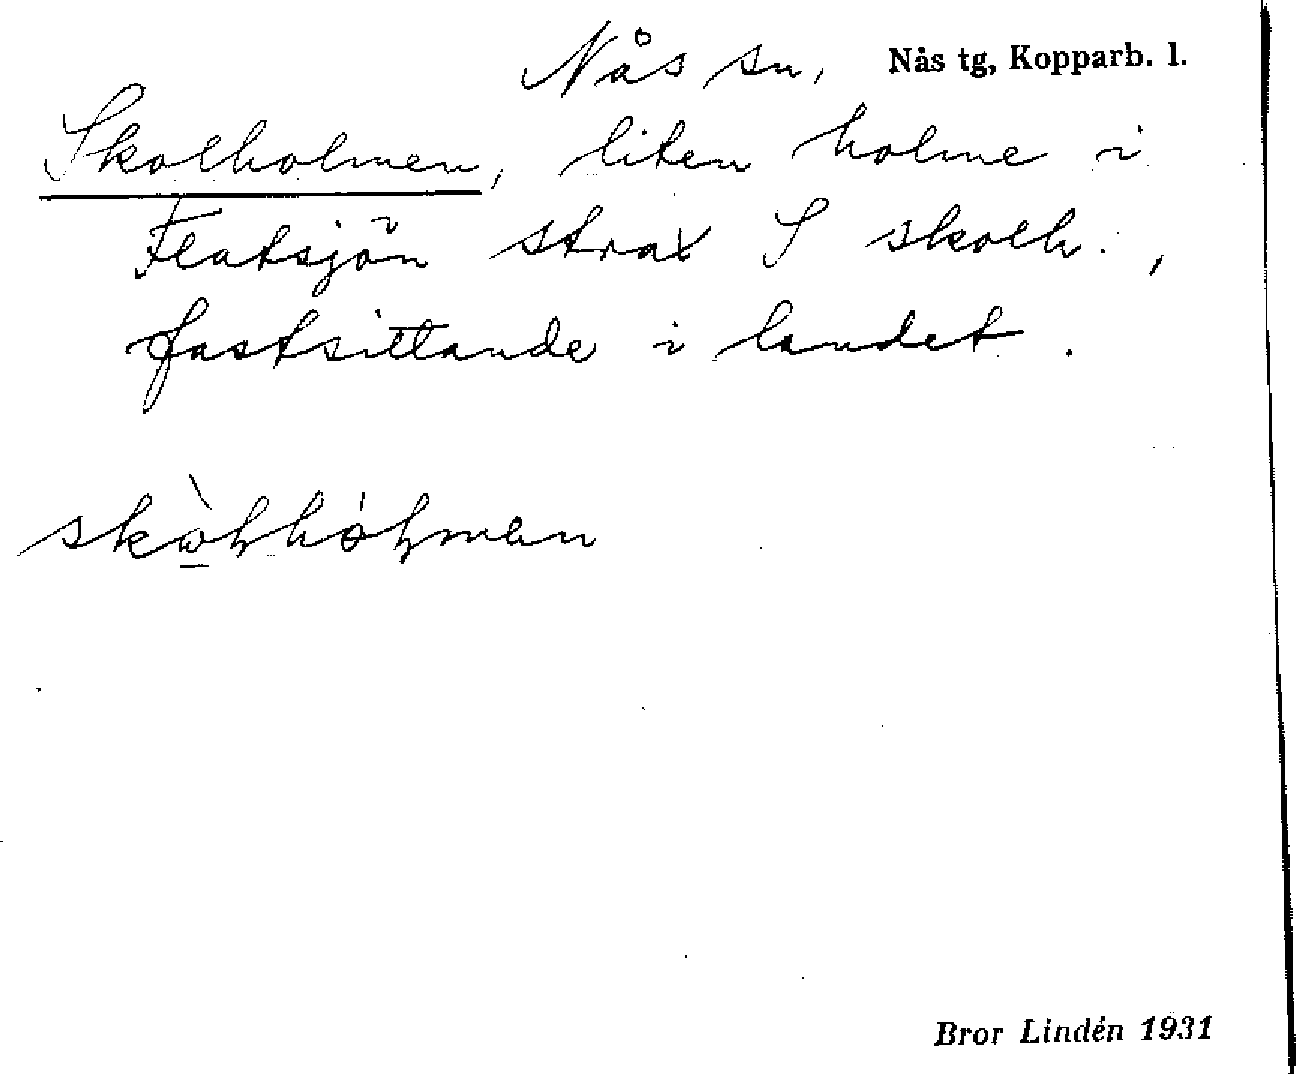 Nås sn, Nås tg, Kopparb. l.
Skolholmen, liten holme i
Flatsjön strax S skolh.,
fastsittande i landet.
Bror Lindén 1931